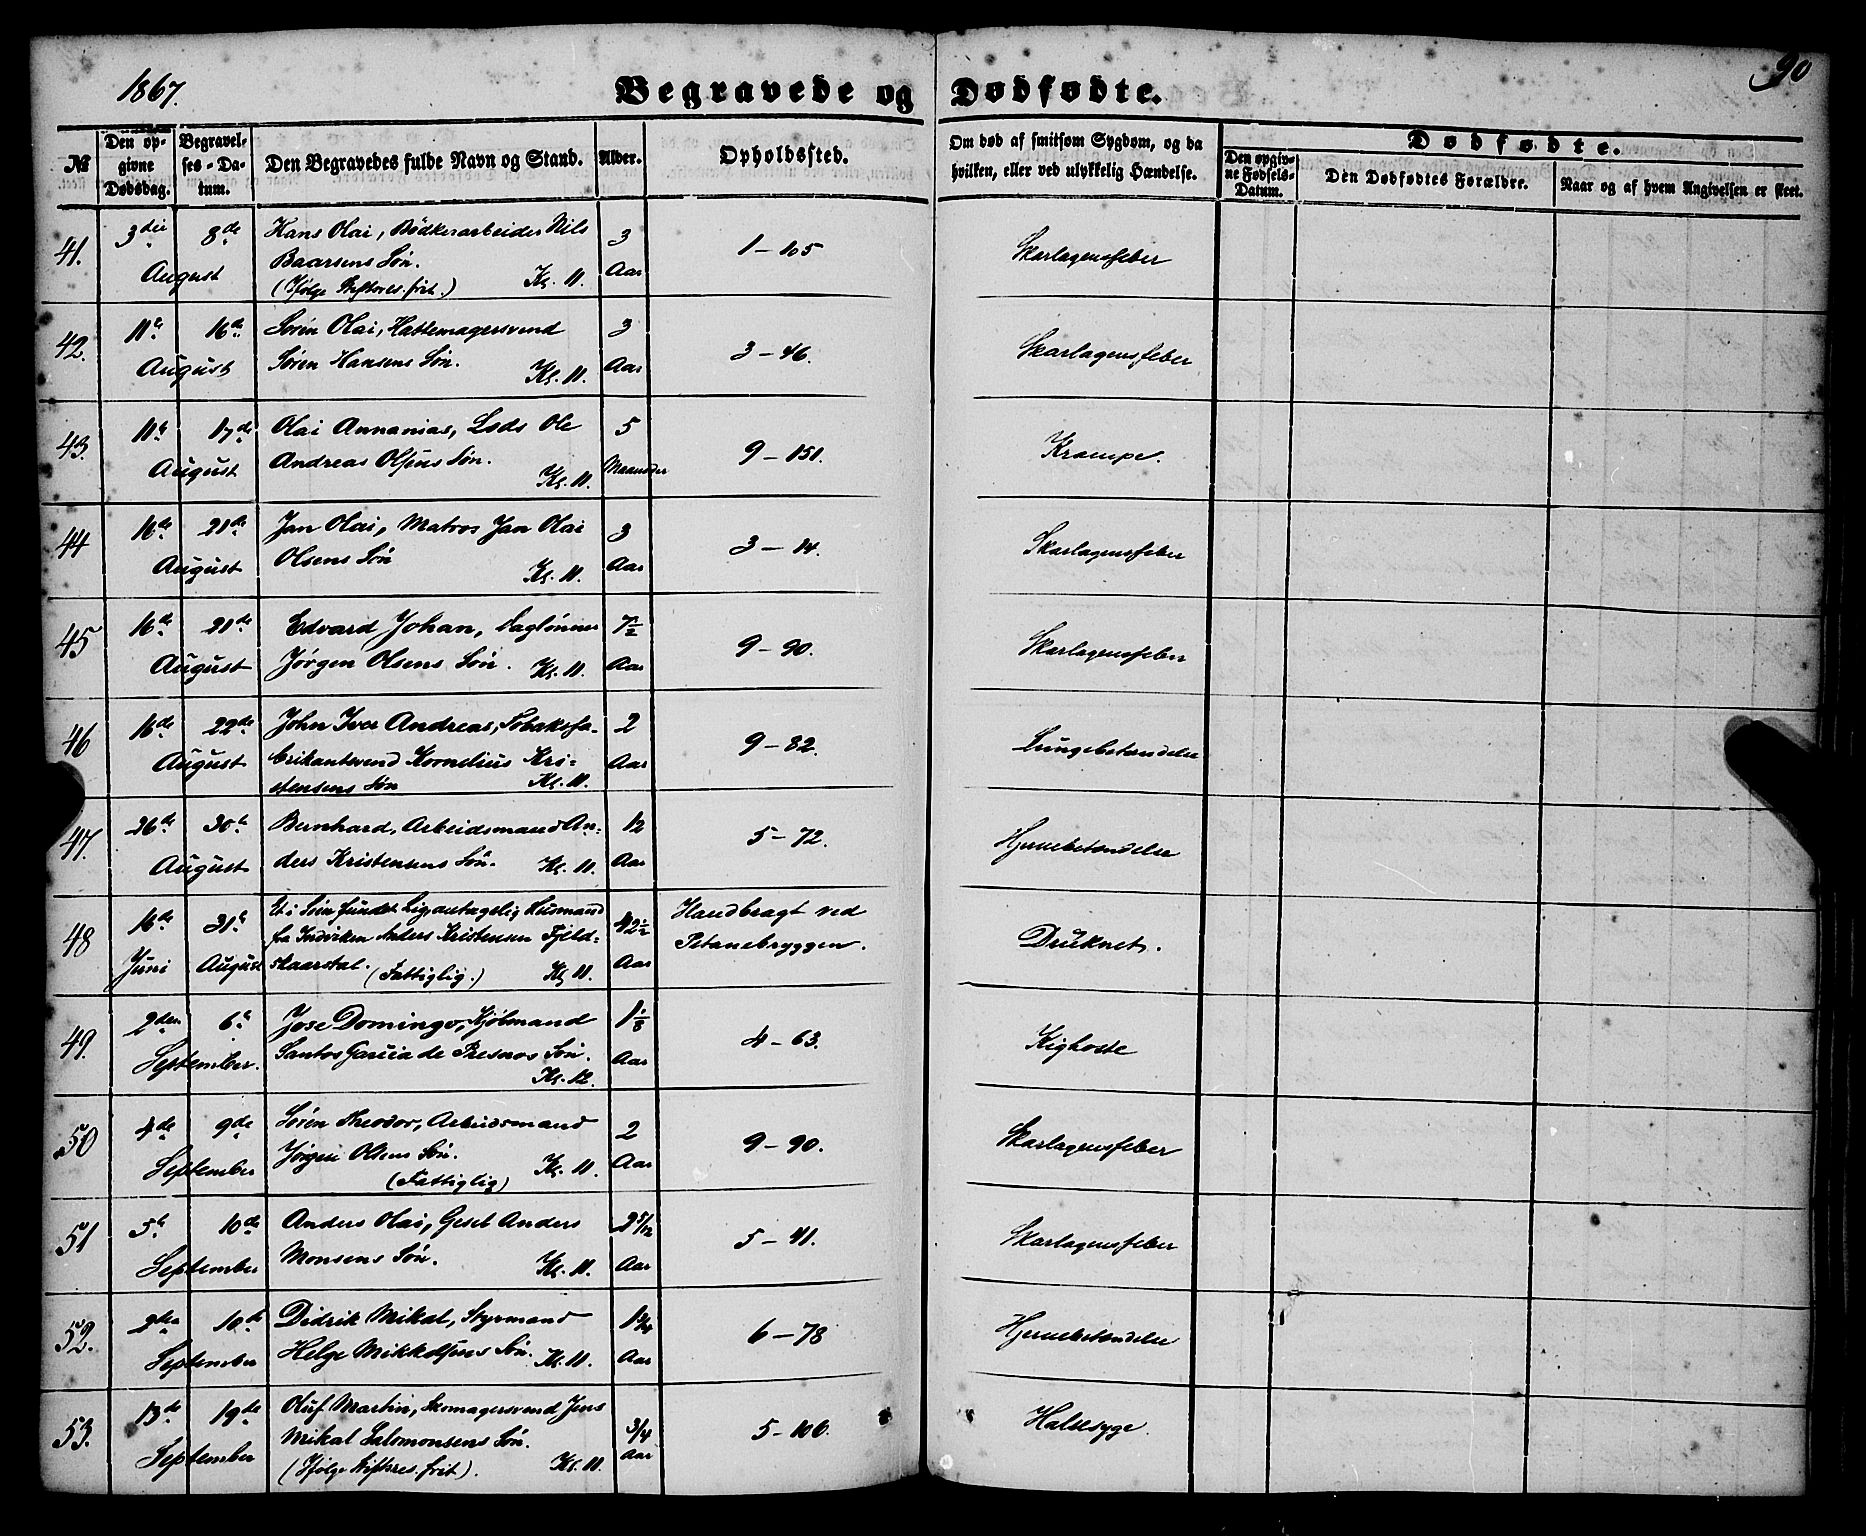 1867.
Begravede og Dødfødte.
90
№
Den opgivne Dødsdag.
Begravelses-Datum.
Den Begravedes fulde Navn og Stand.
Alder.
Opholdssted.
Om død af smitsom Sygdom, og da hvilken, eller ved ulykkelig Hændelse.
Dødfødte.
Den opgivne Fødsels-Datum.
Den Dødfødtes Forældre.
Naar og af hvem Angivelsen er skeet.
41. 3die 8de Hans Olai, Bödkerarbeider Nils 3 1-105 Skarlagensfeber
August Baarsens Søn. Aar
(Ifølge Stiftsres. frit.) Kl. 11.
42. 11te 16de Sørén Olai, Hattemagersvend 3 3-46. Skarlagensfeber
August Søren Hansens Søn. Aar
Kl. 11.
43. 11te 17de Olai Annanias, Lods Ole 5 9-151. Krampe.
August Andreas Olsens Søn. Maaneder
Kl. 11.
44 16de 21de Jan Olai, Matros Jan Olai 3 3-14. Skarlagensfeber
August Olsens Søn Aar
Kl. 11.
45 16de 21de Edvard Johan, Daglønner 7½ 9-90. Skarlagensfeber
August Jørgen Olsens Søn. Kl. 11. Aar
46 16de 22de John Iver Andreas, Tobaksfa- 2 9-82. Lungebetændelse
August brikantsvend Kornelius Kri- Aar
stensens Søn Kl. 11.
47. 26de 30te Bernhard, Arbeidsmand An- 12 5-72. Hjernebetændelse
August ders Kristensens Søn. Kl. 11. Aar
48 16de 31te Et i Søen fundet Lig, antagelig Husmand 42½ Ilandbragt ved Druknet.
Juni August fra Indviken Anders Kristensen Fjeld- Aar Petanebryggen.
skaarstal. (Fattiglig.) Kl 11.
49. 2den 6te Jose Domingo, Kjøbmand 1⅛ 4-63. Kighoste
September. Santos Garcia de Presnos Søn. Aar
Kl. 12.
50 4de 9de Søren Theodor, Arbeidsmand 2 9-90. Skarlagensfeber
September Jørgen Olsens Søn. Kl. 11. Aar
(Fattiglig)
51 5te 10de Anders Olai, Gesel Anders 2 5/12 5-41. Skarlagensfeber
September Monsens Søn. Kl. 11. Aar
52. 2den 10de Didrik Mikal, Styrmand 1¾ 6-78 Hjernebetændelse
September Helge Mikkelsens Søn. Kl. 11. Aar
53. 13de 19de Oluf Martin, Skomagersvend Jens 3/4 5-106. Halssyge
September Mikal Salomonsens Søn. Aar
(Ifølge Stiftsres. frit). Kl. 11.